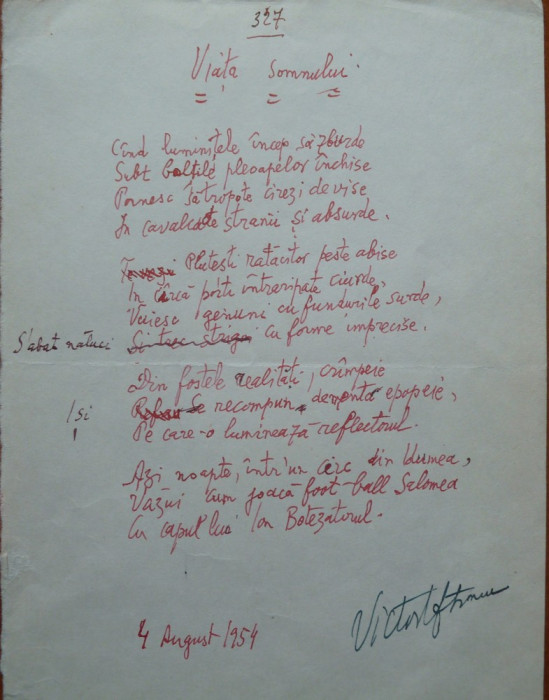 327
Viața somnului
Cînd luminițele încep să zburde
Subt bolțile pleoapelor închise
Pornesc să tropote cirezi de vise
In cavalcate stranii și absurde.
Plutești rătăcitor peste abise
In cîrcă porți întraripate ciurde,
Vuiesc genuni cu fundurile surde,
S'abat năluci cu forme imprecise.
Din fostele realități, crîmpeie
Și recompun dementa epopeie,
Pe care-o luminează reflectorul.
Azi noapte, într'un circ din Idumea,
Văzui cum joacă foot-ball Salomea
Cu capul lui Ion Botezătorul.
4 August 1954
Victor Eftimiu